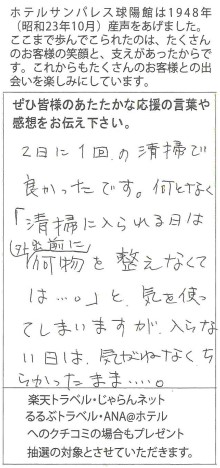 ホテルサンパレス球陽館は1948年
（昭和23年10月）産声をあげました。
ここまで歩んでこられたのは、たくさん
のお客様の笑顔と、支えがあったからで
す。これからもたくさんのお客様との出
会いを楽しみにしています。
ぜひ皆様のあたたかな応援の言葉や
感想をお伝え下さい。
2日に1回の清掃で
良かったです。何となく
「清掃に入られる日は
外出前に
荷物を整えなくて
は…。」と、気を使っ
てしまいますが、入らな
い日は、気がねなくち
らかったまま……。
楽天トラベル・じゃらんネット
るるぶトラベル・ANA@ホテル
へのクチコミの場合もプレゼント
抽選の対象とさせていただきます。